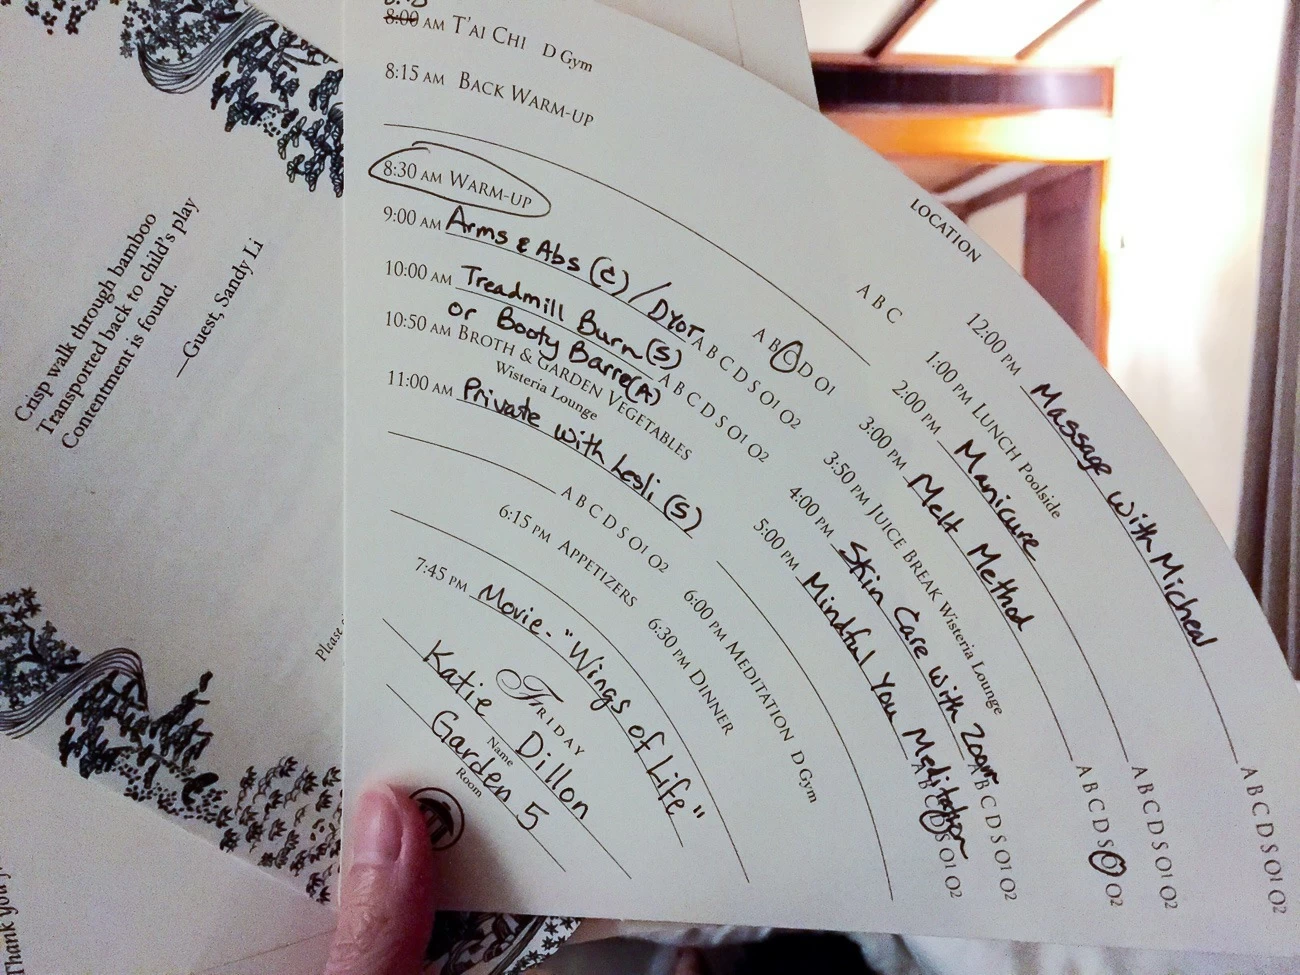 Crisp walk through bamboo
Transported back to child's play
Contentment is found.
—Guest, Sandy Li
Please
Thank you
8:00 AM T'AI CHI D Gym
8:15 AM BACK WARM-UP
LOCATION
8:30 AM WARM-UP A B C
9:00 AM Arms & Abs (C) / DYOT A B C D O1
10:00 AM Treadmill Burn (S) A B C D S O1 O2
or Booty Barre (A) A B C D S O1 O2
10:50 AM BROTH & GARDEN VEGETABLES
Wisteria Lounge
11:00 AM Private with Lesli (S)
A B C D S O1 O2
12:00 PM Massage with Micheal A B C D S O1 O2
1:00 PM LUNCH Poolside
2:00 PM Manicure A B C D S O1 O2
3:00 PM Melt Method A B C D S O1 O2
3:50 PM JUICE BREAK Wisteria Lounge
4:00 PM Skin Care with A B C D S O1 O2
5:00 PM Mindful You Meditation A B C D S O1 O2
6:00 PM MEDITATION D Gym
6:15 PM APPETIZERS
6:30 PM DINNER
7:45 PM Movie - "Wings of Life"
FRIDAY
Katie Dillon
Name
Garden 5
Room